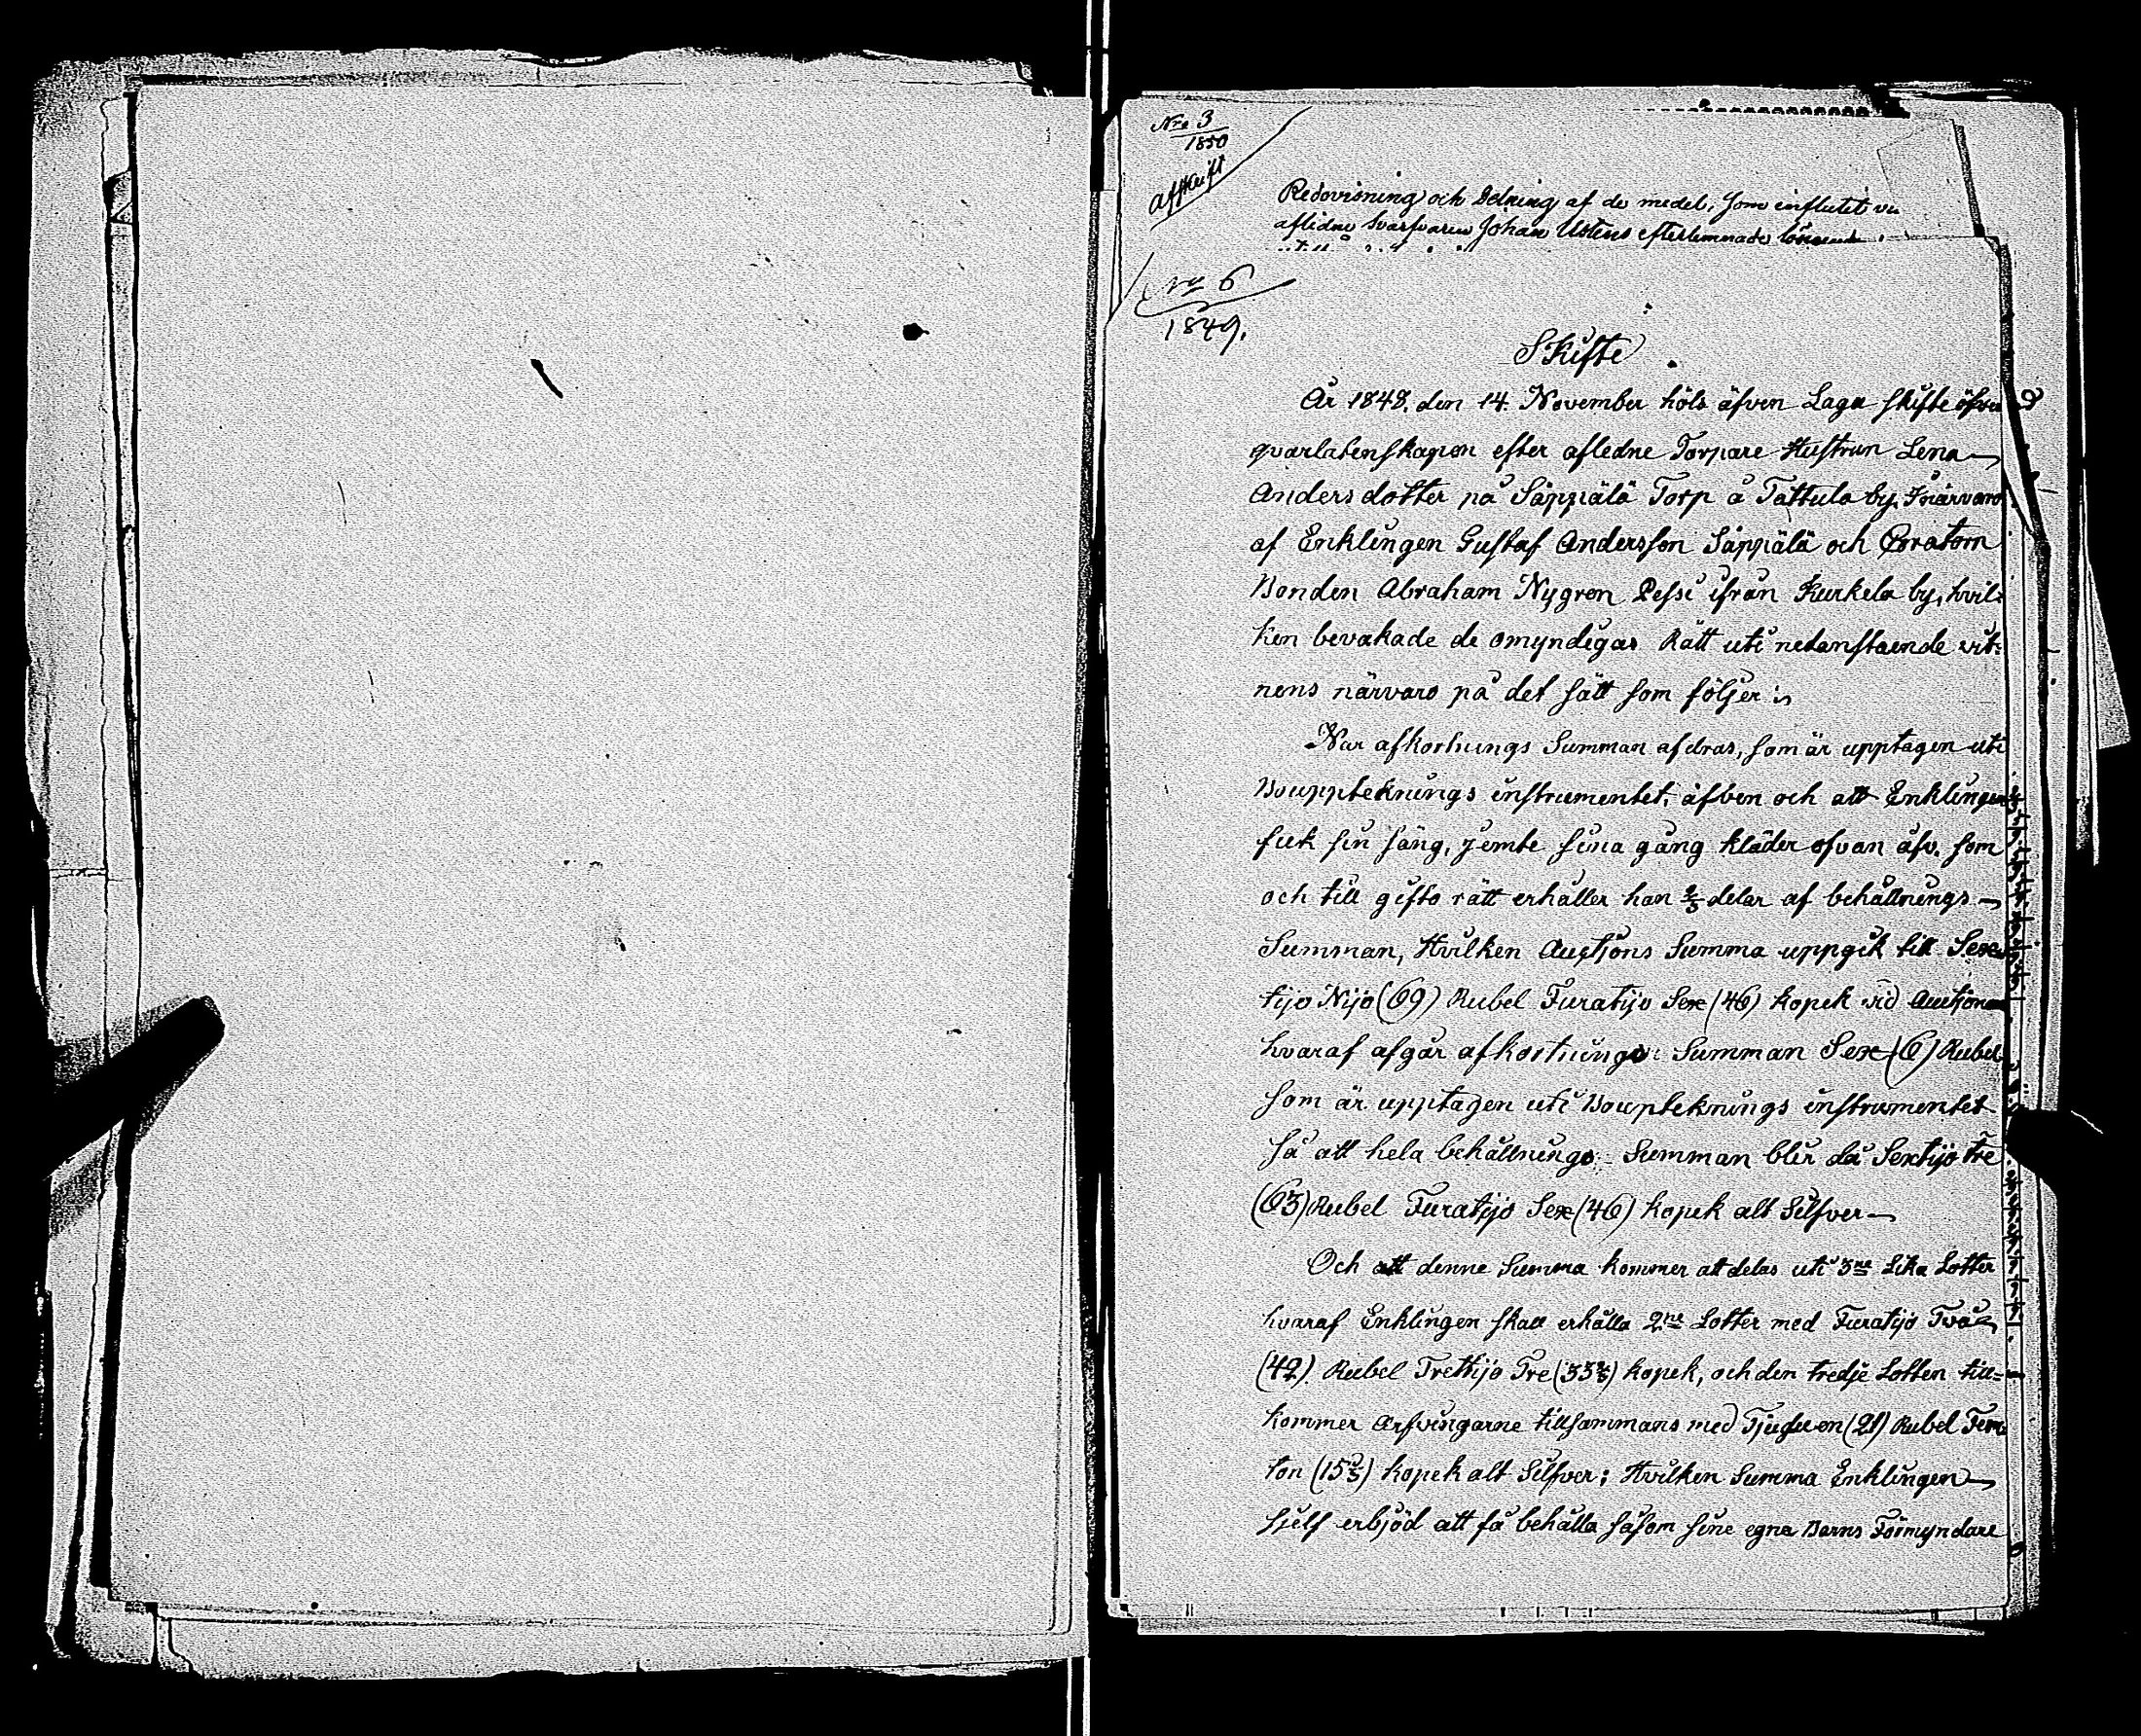 Nro 3
1850
Afskrift
Redovisning och Delning af de medel, som influtit
aflidne Svarfvaren Johan Ustens efterlemnade
No 6
1849.
Skifte
År 1848. den 14. November höls äfven Laga skifte öfver
qvarlatenskapen efter afledne Torpare Hustrun Lena
Anders dotter på Säppiälä Torp å Tattula by. I närvaro
af Enklingen Gustaf Andersson Säppiälä och Coratorn
Bonden Abraham Nygren Pessi ifrån Kurkela by, hvil:
ken bevakade de omyndigas Rätt uti nedanstaende vit:
nens närvaro på det sätt som följer:
Nar afkortnings Summan afdras, som är upptagen uti
Bouppteknings instrumentet, äfven och att Enklingen
fick sin säng, jemte sina gång kläder ofvan äfv. som
och till gifto rätt erhåller han 2/3 delar af behållnings
Summan, Hvilken Auctjons Summa uppgik till Sex
tijo Nijo (69) Rubel Furatijo Sex (46) kopek vid Auctjonen
hvaraf afgår afkortnings: Summan Sex (6) Rubel
som är upptagen uti Boupteknings instrumentet
så att hela behållnings- Summan blir då Sextijo tre
(63) Rubel Furatijo Sex (46) kopek alt Silfver
Och att denne Summa kommer att delas uti 3ne Lika Lotter
hvaraf Enklingen skall erhålla 2ne Lotter med Furatijo Två
(42) Rubel Trettijo Tre (33 2/3) kopek, och den tredje Lotten till=
kommer arfvingarne tillsammans med Tjugu en (21) Rubel Fem
ton (15 1/3) kopek alt Silfver; Hvilken Summa Enklingen
sjelf erbjöd att få behålla såsom sine egna Barns Förmyndare